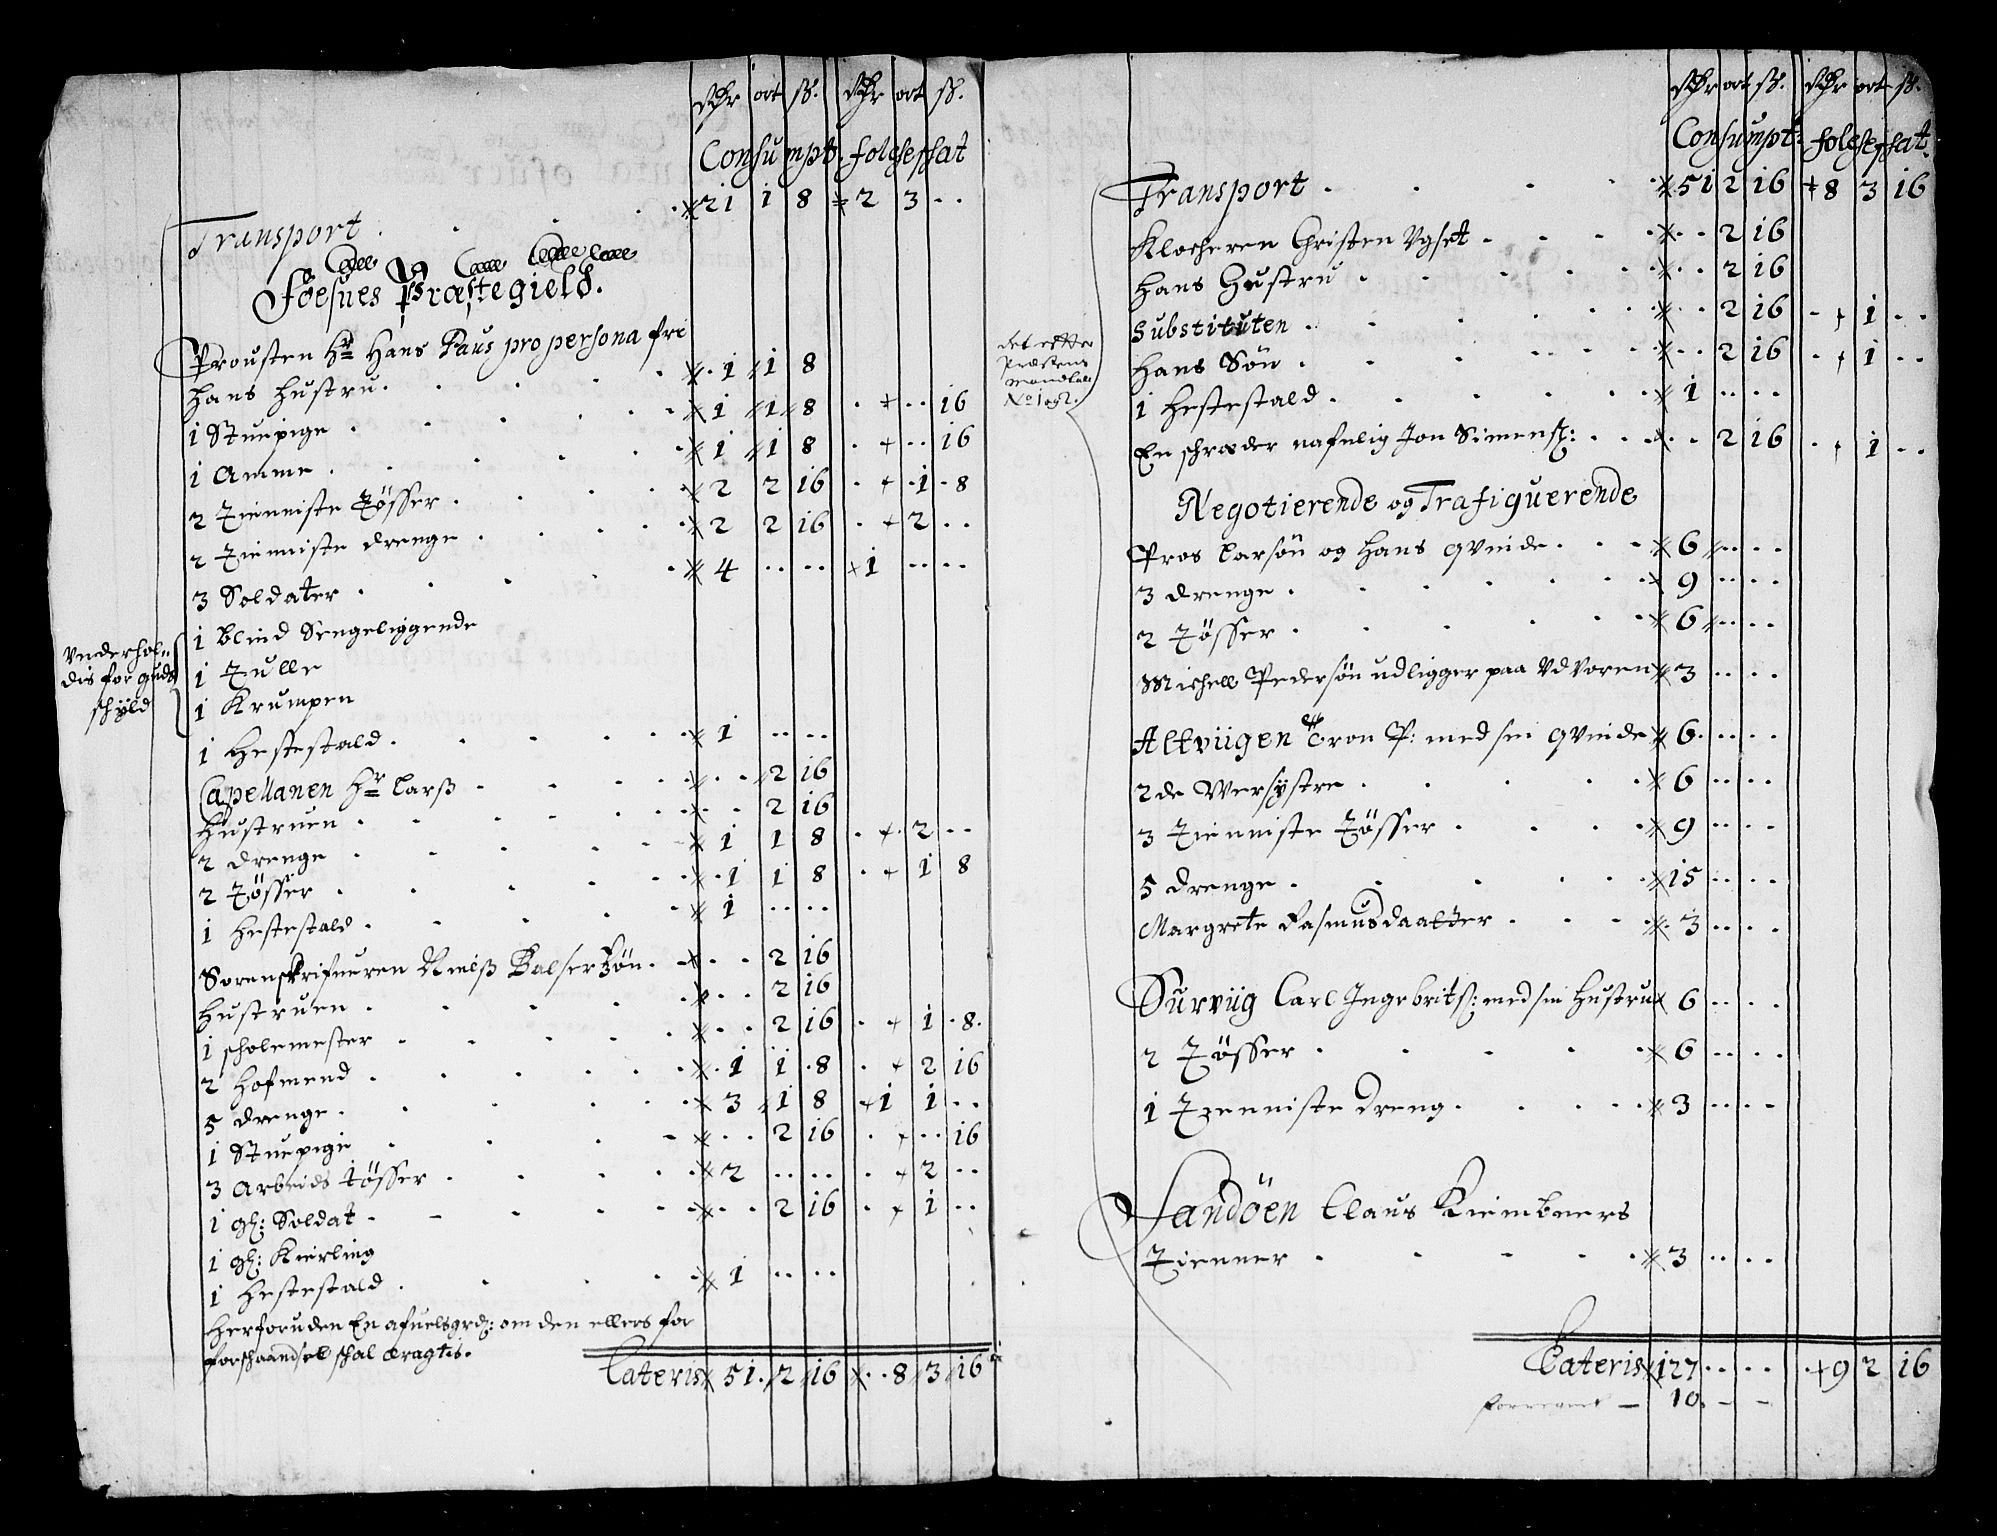 Rdr ort ß. Rdr ort ß.
Consumpt. folcheschat
Transport 21 1 8 2 3 ..
Föesnes Præstegield.
Prousten Hr Hans Paus pro persona fri
Hans Hustru 1 1 8
1 Stuepige 1 1 8 .. 16
1 Amme 1 1 8 .. 16
2 Tienniste Tösser 2 2 16 1 8
2 Tienniste drenge 2 2 16 2 ..
3 Soldater 4 .. .. 1 .. ..
Underhol-
dis for guds
schyld
1 Blind Sengeliggende
1 Tulle
1 Krumpen
1 Hestestald 1 .. ..
Capellanen Hr Larß .. 2 16
Hustruen .. 2 16
2 drenge 1 1 8 2 ..
2 Tösser 1 1 8 1 8
1 Hestestald 1 .. ..
Sorenskrifueren Nielß Balserßön .. 2 16
Hustruen .. 2 16
1 scholemester .. 2 16 1 8.
2 Hofmend 1 1 8 2 16
5 drenge 3 1 8 1 1 ..
1 Stuepige .. 2 16 .. 16
3 Arbeids Tösser 2 .. .. 2 ..
1 gl: Soldat .. 2 16 1 ..
1 gl: Kierling
1 Hestestald 1 .. ..
Herforuden En afuelsgrd: om den ellers for
forschaandsel schal dragtis.
Lateris 51. 2 16 8 3 16
Rdr ort ß. Rdr ort ß.
Consumpt: folcheschat.
Transport 51 2 16 8 3 16
Klocheren Christen Ugset .. 2 16
Hans Hustru .. 2 16
det efter
Præstens
Mandtall
No
Substituten .. 2 16 1 ..
Hans Sön .. 2 16 1 ..
1 Hestestald 1 .. ..
En schræder nafnlig Jon Simens: .. 2 16 1 ..
Negotierende og Trafiquerende
Pros Larsön og Hans Qvinde 6 .. ..
3 drenge 9 .. ..
2 Tösser 6 .. ..
Michell Pedersön udligger paa Udvoren 3 .. ..
Altviigen Tron P: med sin Qvinde 6 .. ..
2de Wersystre 6 .. ..
3 Tienniste Tösser 9 .. ..
5 drenge 15 .. ..
Margrete Rasmusdaatter 3 .. ..
Surviig Carl Ingebrits: med sin Hustru 6 .. ..
2 Tösser 6 .. ..
1 Tzenniste Dreng 3 .. ..
Sandöen Claus Kiembners
Tienner 3 .. ..
Lateris 127 .. .. 9 2 16
10 - -